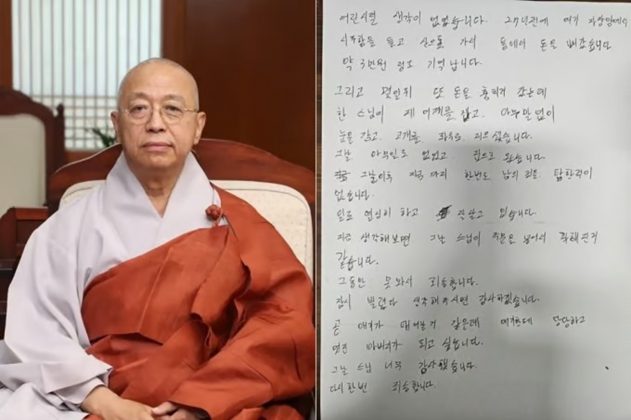 어린시절 생각이 없었습니다. 27년전에 여기 자장암에서
시주함을 들고 산으로 가서 통에서 돈을 빼갔습니다
약 3만원 정도 기억납니다.
그리고 몇일뒤 또 돈을 훔치러 갔는데
한 스님이 제 어깨를 잡고, 아무말없이
눈을 감고, 고개를 좌우로 저으셨습니다.
그날 아무일도 없었고 집으로 왔습니다.
그날이후 지금까지 한번도 남의 것을 탐한적이
없습니다.
일도 열심히 하고 잘살고 있습니다.
지금 생각해보면 그날 스님이 주문을 넣어서 착해진거
같습니다.
그동안 못와서 죄송합니다.
잠시 빌렸다 생각해주시면 감사하겠습니다.
곧 애기가 태어날거 같은데 애기한테 당당하고
멋진 아버지가 되고 싶습니다.
그날 스님 너무 감사했습니다.
다시한번 죄송합니다.